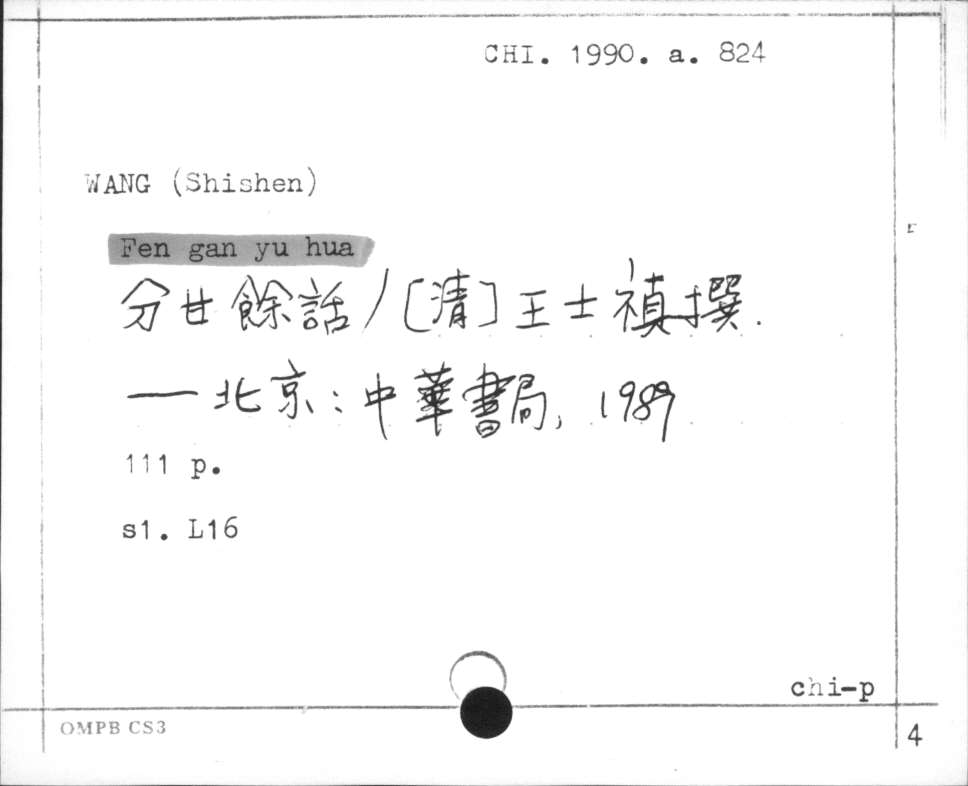 CHI. 1990. a. 824
WANG (Shishen)
Fen gan yu hua
分甘餘話/[清]王士禎撰.
—北京:中華書局, 1989
111 p.
s1. L16
chi-p
OMPB CS3
4